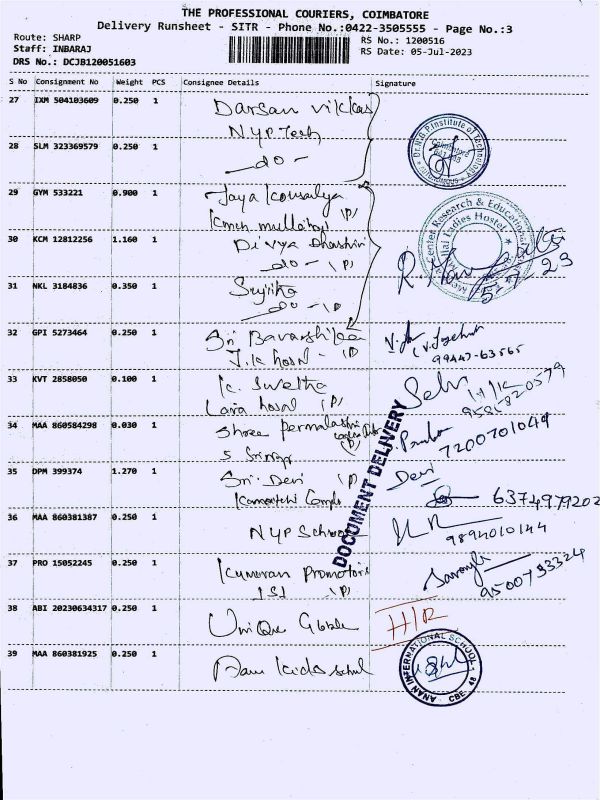 THE PROFESSIONAL COURIERS, COIMBATORE
Delivery Runsheet - SITR - Phone No.:0422-3505555 - Page No.:3
Route: SHARP
Staff: INBARAJ
DRS No.: DCJB120051603
RS No.: 1200516
RS Date: 05-Jul-2023
S No Consignment No Weight PCS Consignee Details Signature
27 IXM 504103609 0.250 1 Darsan vikkas
NYP Tech
28 SLM 323369579 0.250 1 -do-
Dr.N.G.P.Institute of Technology
Coimbatore
29 GYM 533221 0.900 1 Jaya
(P)
30 KCM 12812256 1.160 1 Divya Dharshini
-do- (P)
Center Research & Educational
Mullai Ladies Hostel
5-7-23
31 NKL 3184836 0.350 1 Sujitha
-do- (P)
32 GPI 5273464 0.250 1 Sri
J.K hosel - (P)
99447-63565
33 KVT 2858050 0.100 1 K. Swetha
Lara hosel (P)
9585820579
34 MAA 860584298 0.030 1 Shree
(P)
7200701049
DOCUMENT DELIVERY
35 DPM 399374 1.270 1 Sri Devi (P)
Devi
6374979202
36 MAA 860381387 0.250 1 NYP School
9894010144
37 PRO 15052245 0.250 1 Kumaran Promotors
151 (P)
9500733324
38 ABI 20230634317 0.250 1 Unique Globle
H/R
39 MAA 860381925 0.250 1 Kids
ANAN INTERNATIONAL SCHOOL
CBE 48